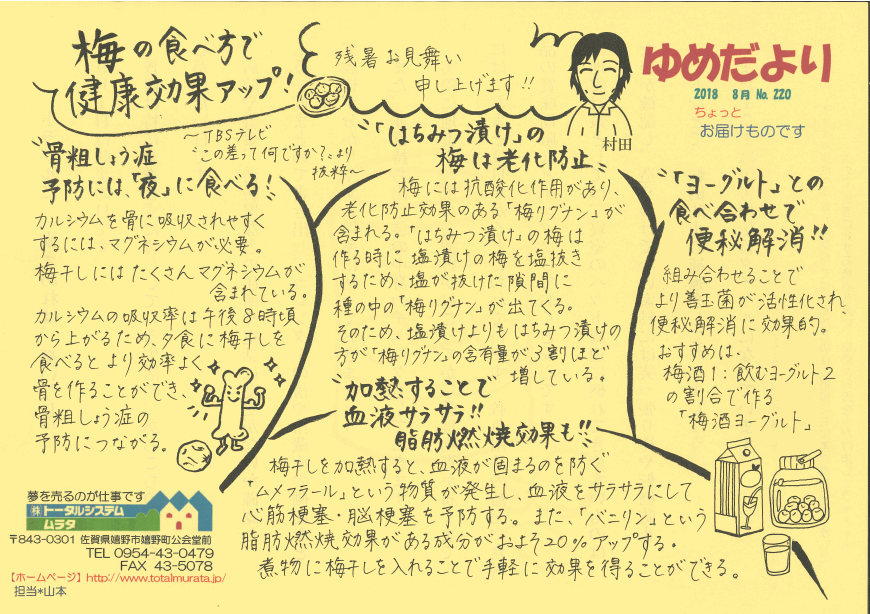 梅の食べ方で
健康効果アップ!
残暑お見舞い
申し上げます!!
村田
ゆめだより
2018 8月 No.220
ちょっと
お届けものです
~TBSテレビ
"この差って何ですか?"より
抜粋~
"骨粗しょう症
予防には、「夜」に食べる!"
カルシウムを骨に吸収されやすく
するには、マグネシウムが必要。
梅干しにはたくさんマグネシウムが
含まれている。
カルシウムの吸収率は午後8時頃
から上がるため、夕食に梅干しを
食べるとより効率よく
骨を作ることができ、
骨粗しょう症の
予防につながる。
"「はちみつ漬け」の
梅は老化防止"
梅には抗酸化作用があり、
老化防止効果のある「梅リグナン」が
含まれる。「はちみつ漬け」の梅は
作る時に塩漬けの梅を塩抜き
するため、塩が抜けた隙間に
種の中の「梅リグナン」が出てくる。
そのため、塩漬けよりもはちみつ漬けの
方が「梅リグナン」の含有量が3割ほど
増している。
"「ヨーグルト」との
食べ合わせで
便秘解消!!"
組み合わせることで
より善玉菌が活性化され、
便秘解消に効果的。
おすすめは、
梅酒1:飲むヨーグルト2
の割合で作る
「梅酒ヨーグルト」
"加熱することで
血液サラサラ!!
脂肪燃焼効果も!!"
梅干しを加熱すると、血液が固まるのを防ぐ
「ムメフラール」という物質が発生し、血液をサラサラにして
心筋梗塞・脳梗塞を予防する。また、「バニリン」という
脂肪燃焼効果がある成分がおよそ20%アップする。
煮物に梅干しを入れることで手軽に効果を得ることができる。
夢を売るのが仕事です
㈱トータルシステム
ムラタ
〒843-0301 佐賀県嬉野市嬉野町公会堂前
TEL 0954-43-0479
FAX 43-5078
【ホームページ】http://www.totalmurata.jp/
担当*山本